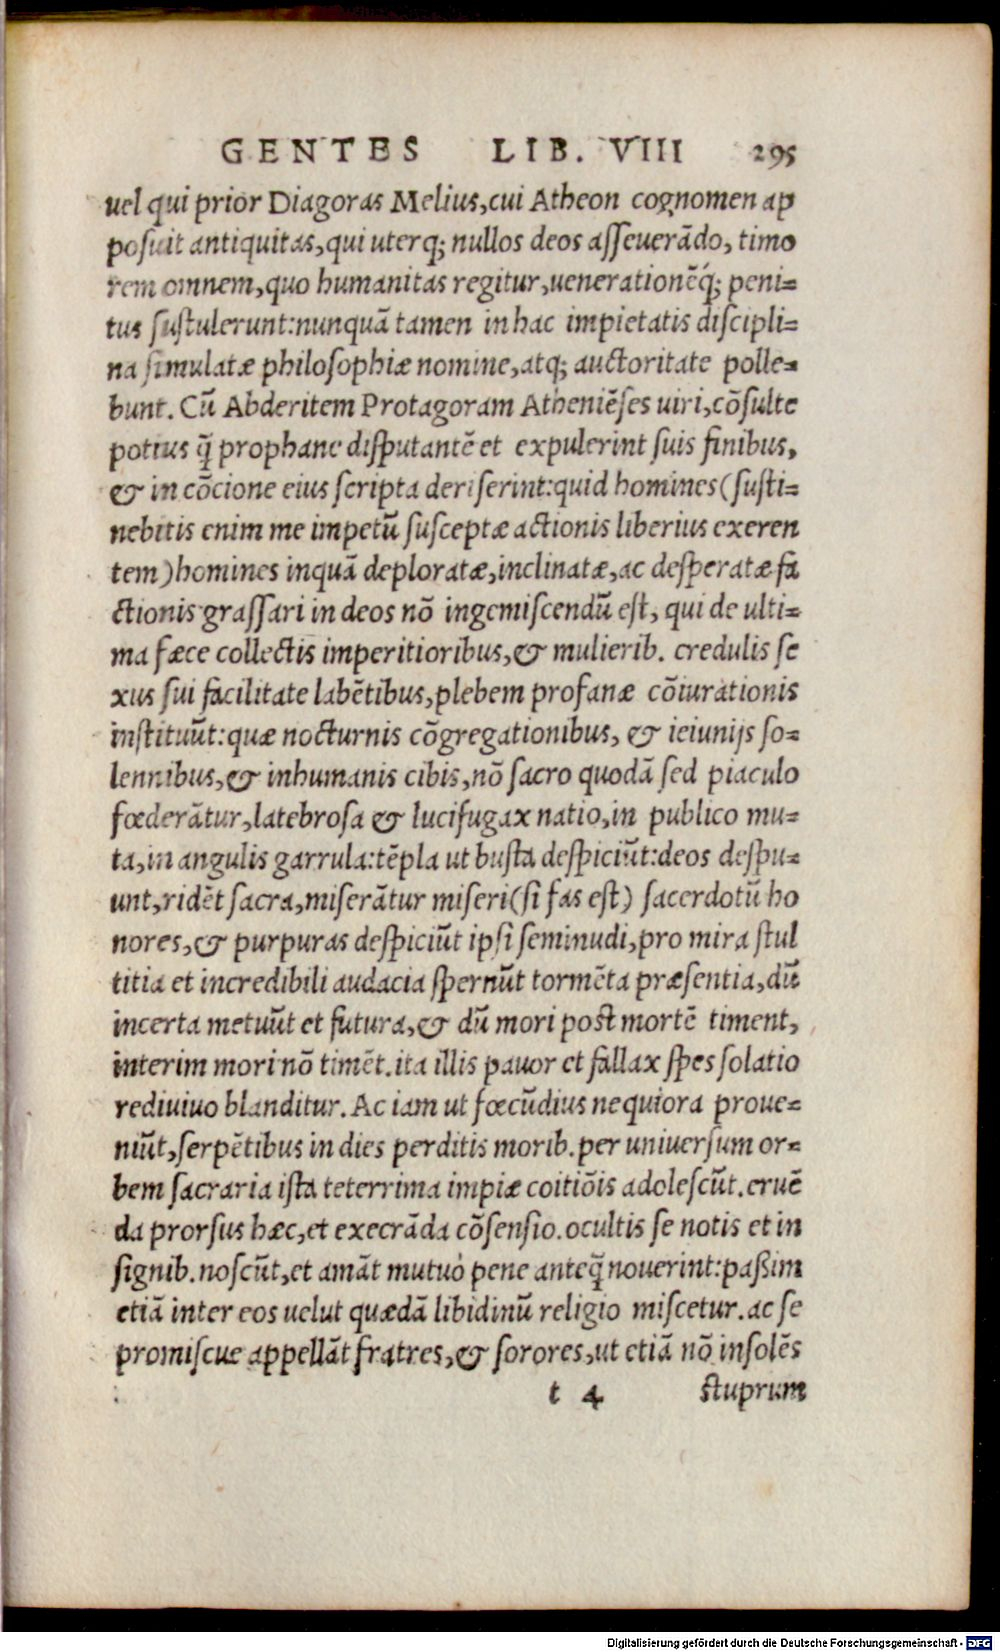 GENTES LIB. VIII 295
uel qui prior Diagoras Melius,cui Atheon cognomen ap
posuit antiquitas,qui uterq; nullos deos asſeuerãdo, timo
rem omnem,quo humanitas regitur,uenerationẽq́; peni=
tus ſuſtulerunt:nunquã tamen in hac impietatis diſcipli=
na ſimulatæ philoſophiæ nomine,atq; auctoritate polle=
bunt. Cũ Abderitem Protagoram Atheniẽſes uiri,cõſulte
potius q̃ prophane diſputantẽ et expulerint ſuis finibus,
& in cõcione eius ſcripta deriſerint:quid homines(ſuſti=
nebitis enim me impetũ ſuſceptæ actionis liberius exeren
tem)homines inquã deploratæ,inclinatæ,ac deſperatæ fa
ctionis graſſari in deos nõ ingemiſcendũ eſt, qui de ulti=
ma fæce collectis imperitioribus,& mulierib. credulis ſe
xus ſui facilitate labẽtibus,plebem profanæ cõiurationis
inſtituũt:quæ nocturnis cõgregationibus, & ieiunijs ſo=
lennibus,& inhumanis cibis,nõ ſacro quodã ſed piaculo
fœderãtur,latebroſa & lucifugax natio,in publico mu=
ta,in angulis garrula:tẽpla ut buſta deſpiciũt:deos deſpu=
unt,ridẽt ſacra,miſerãtur miſeri(ſi fas eſt) ſacerdotũ ho
nores,& purpuras deſpiciũt ipſi ſeminudi,pro mira ſtul
titia et incredibili audacia ſpernũt tormẽta præſentia,dũ
incerta metuũt et futura,& dũ mori poſt mortẽ timent,
interim mori nõ timẽt.ita illis pauor et fallax ſpes ſolatio
rediuiuo blanditur. Ac iam ut fœcũdius nequiora proue=
niũt,ſerpẽtibus in dies perditis morib.per uniuerſum or=
bem ſacraria iſta teterrima impiæ coitiõis adoleſcũt.eruẽ
da prorſus hæc,et execrãda cõſenſio.ocultis ſe notis et in
ſignib.noſcũt,et amãt mutuò pene anteq̃ nouerint:paßim
etiã inter eos uelut quædã libidinũ religio miſcetur.ac ſe
promiſcue appellãt fratres,& ſorores,ut etiã nõ inſolẽs
t 4 ſtuprum
Digitalisierung gefördert durch die Deutsche Forschungsgemeinschaft - DFG